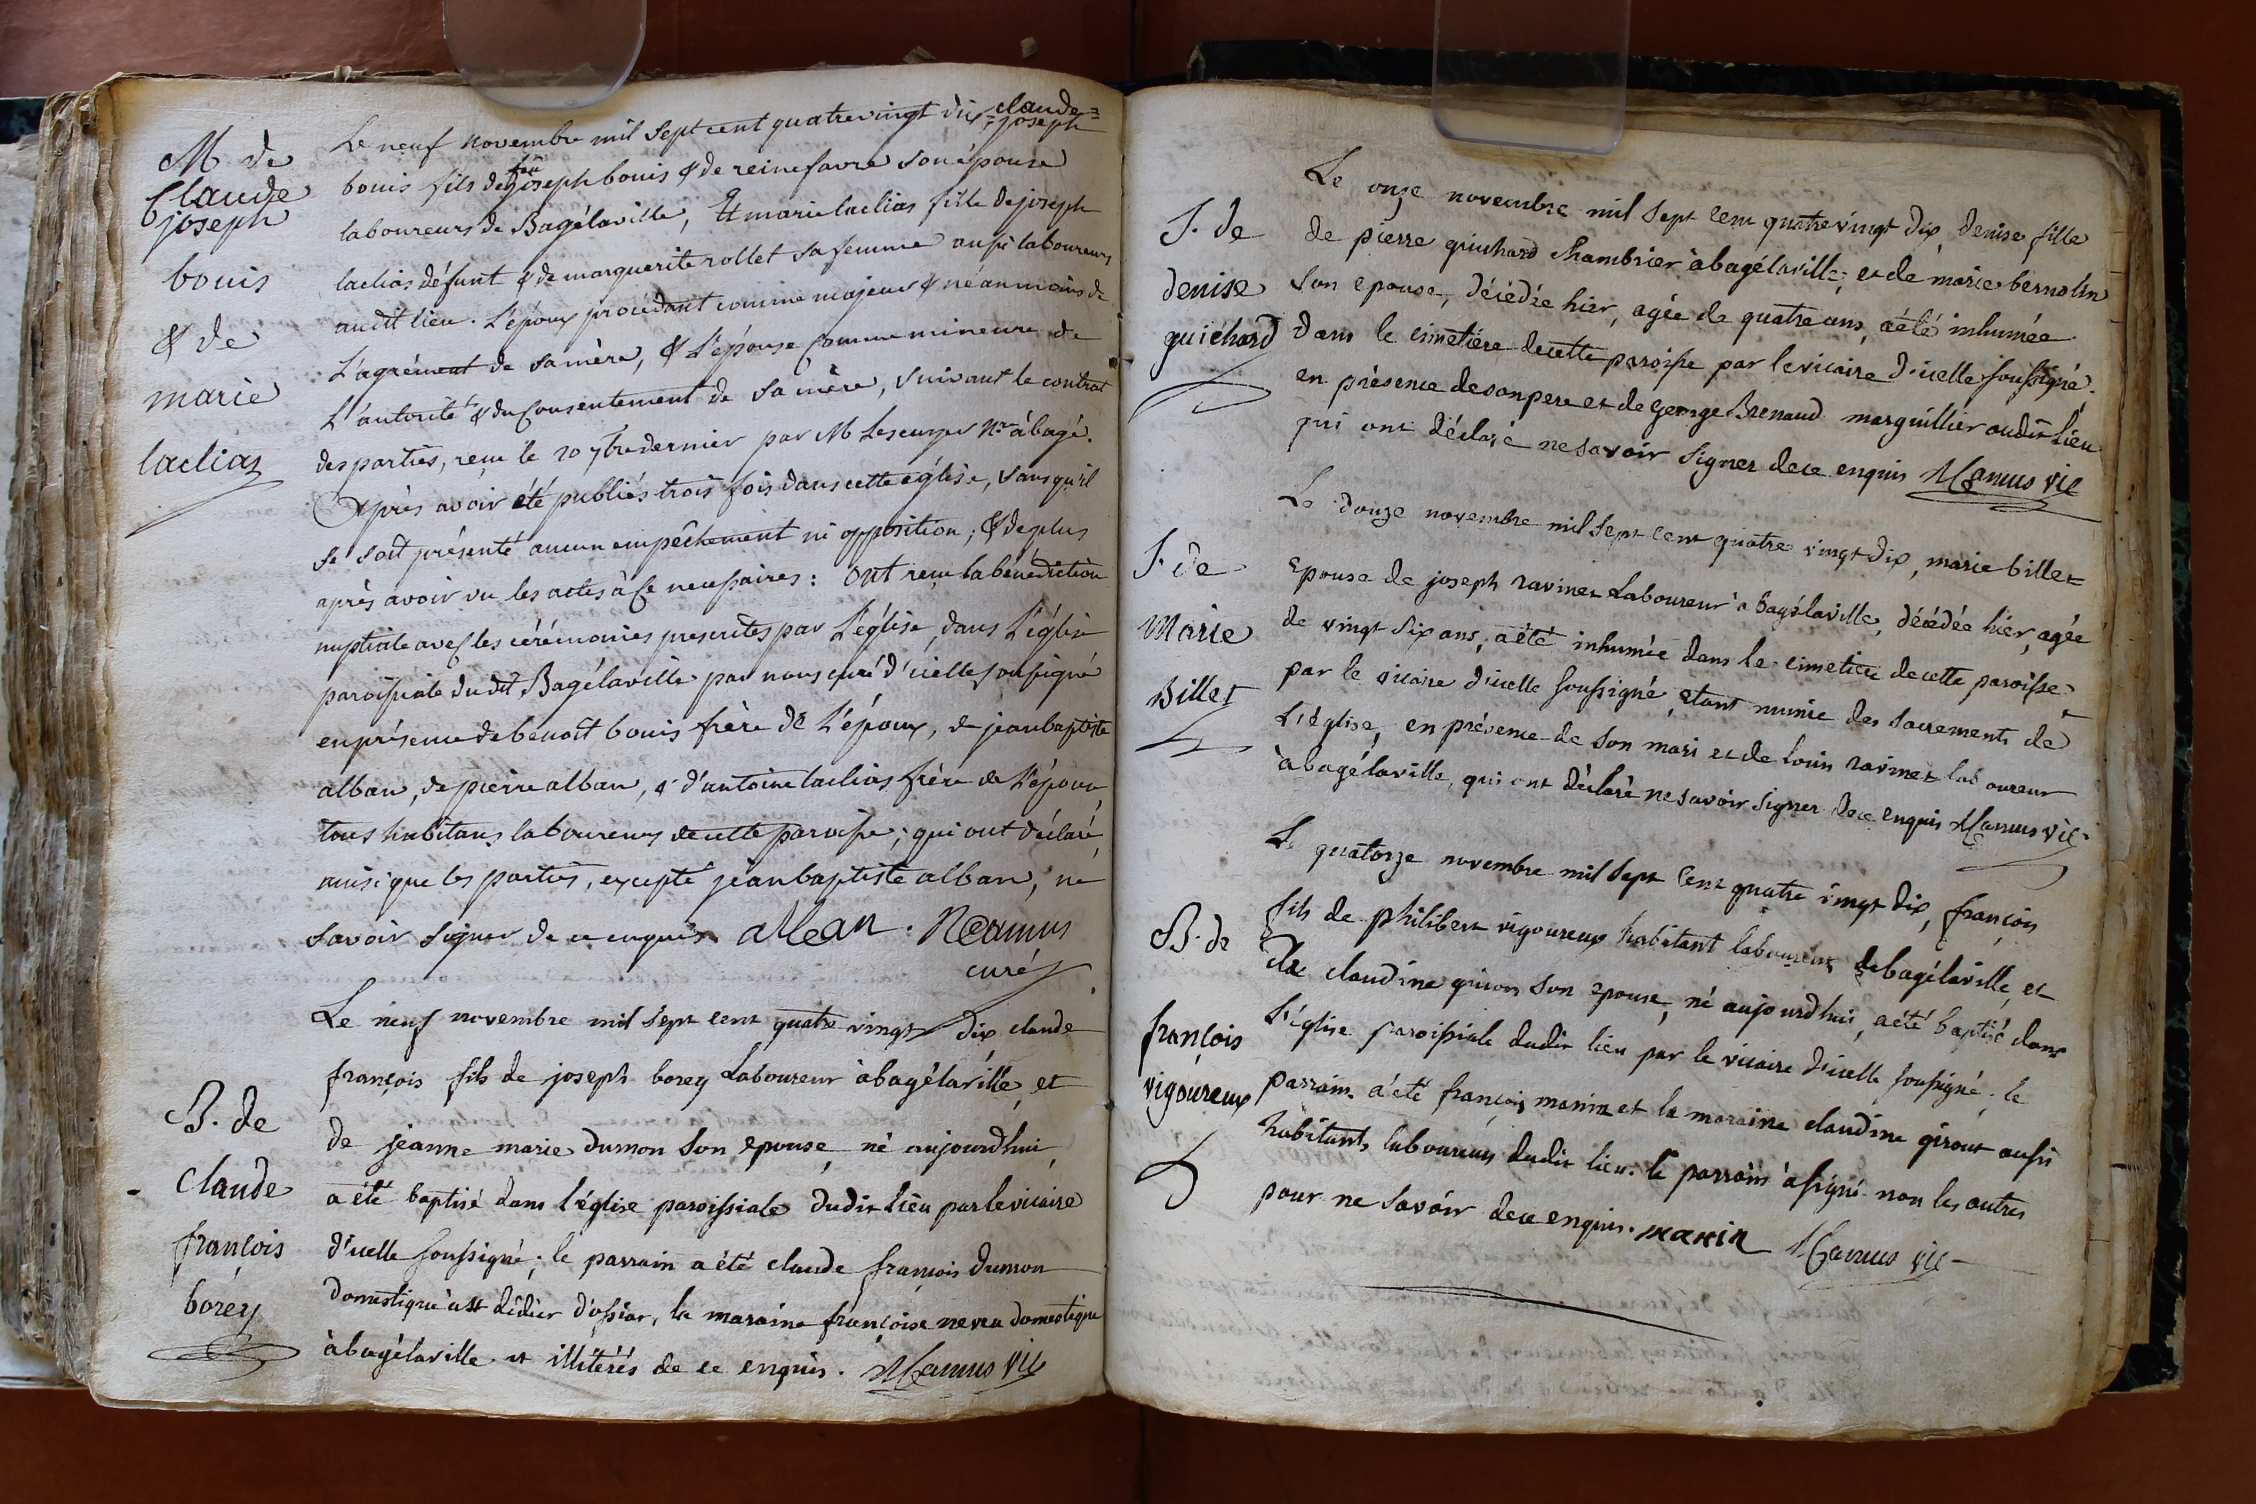 M. de
Claude
joseph
bouis
& de
marie
laclias
Le neuf novembre mil sept cent quatrevingt dix =claude=
=joseph
bouis fils de feu joseph bouis & de reine favre son épouse
laboureurs de Bagélaville, Et marie laclias fille de joseph
laclias défunt & de marguerite rollet sa femme aussi laboureurs
audit lieu. L'époux procédant comme majeur & néanmoins de
L'agrément de sa mère, & L'épouse comme mineure de
L'autorité & du Consentement de sa mère, suivant le contrat
des parties, reçu le 20 7bre dernier par M Lescuyer Nre à bagé.
Après avoir été publiés trois fois dans cette église, sans qu'il
se soit présenté aucun empêchement ni opposition; & de plus
après avoir vu les actes à Ce necessaires: ont reçu la bénédiction
nuptiale avec les cérémonies prescrites par L'église, dans L'église
paroissiale du dit Bagélaville par nous curé d'icelle soussigné
en présence de benoît bouis frère de L'époux, de jean baptiste
alban, de pierre alban, & d'antoine laclias frère de L'épouse
tous habitans laboureurs de cette paroisse; qui ont déclaré,
ainsi que les parties, excepté jean baptiste alban, ne
savoir signer de ce enquis. alban. Néamus
curé
B. de
Claude
françois
borey
Le neuf novembre mil sept cent quatre vingt dix claude
françois fils de joseph borey Laboureur à bagélaville, et
de jeanne marie dumon son epouse, né aujourdhui,
a été baptisé dans l'église paroissiale dudit lieu par le vicaire
d'icelle soussigné; le parrain a été claude françois dumon
domestique a st didier d'ossiar, la maraine françoise neveu domestique
à bagélaville et illitérés de ce enquis. Néamus vic
S. de
denise
guichard
Le onze novembre mil sept cent quatrevingt dix, denise fille
de pierre guichard chambrier à bagélaville, et de marie bernolin
son epouse, décédée hier, agée de quatre ans, a été inhumée
dans le cimetière de cette paroisse par le vicaire d'icelle soussigné,
en présence de son pere et de George Brenaud marguillier audit Lieu
qui ont déclaré ne savoir signer de ce enquis Néamus vic
S. de
Marie
Billet
Le douze novembre mil sept cent quatre vingt dix, marie billet
epouse de joseph ravinet Laboureur à bagélaville, décédée hier, agée
de vingt six ans, a été inhumée dans le cimetiere de cette paroisse,
par le vicaire d'icelle soussigné, etant munie des sacrements de
L'église, en présence de son mari et de louis ravinet laboureur
à bagélaville, qui ont déclaré ne savoir signer de ce enquis Néamus vic.
B. de
françois
vigoureux
Le quatorze novembre mil sept cent quatre vingt dix, françois
fils de philibert vigoureux habitant laboureur de bagélaville, et
de claudine guion son epouse, né aujourdhui, a été baptisé dans
l'église paroissiale dudit lieu par le vicaire d'icelle soussigné. le
parrain a été françois manin et la maraine claudine girout aussi
habitants laboureurs dudit lieu. le parrain a signé non les autres
pour ne savoir de ce enquis. manin Néamus vic